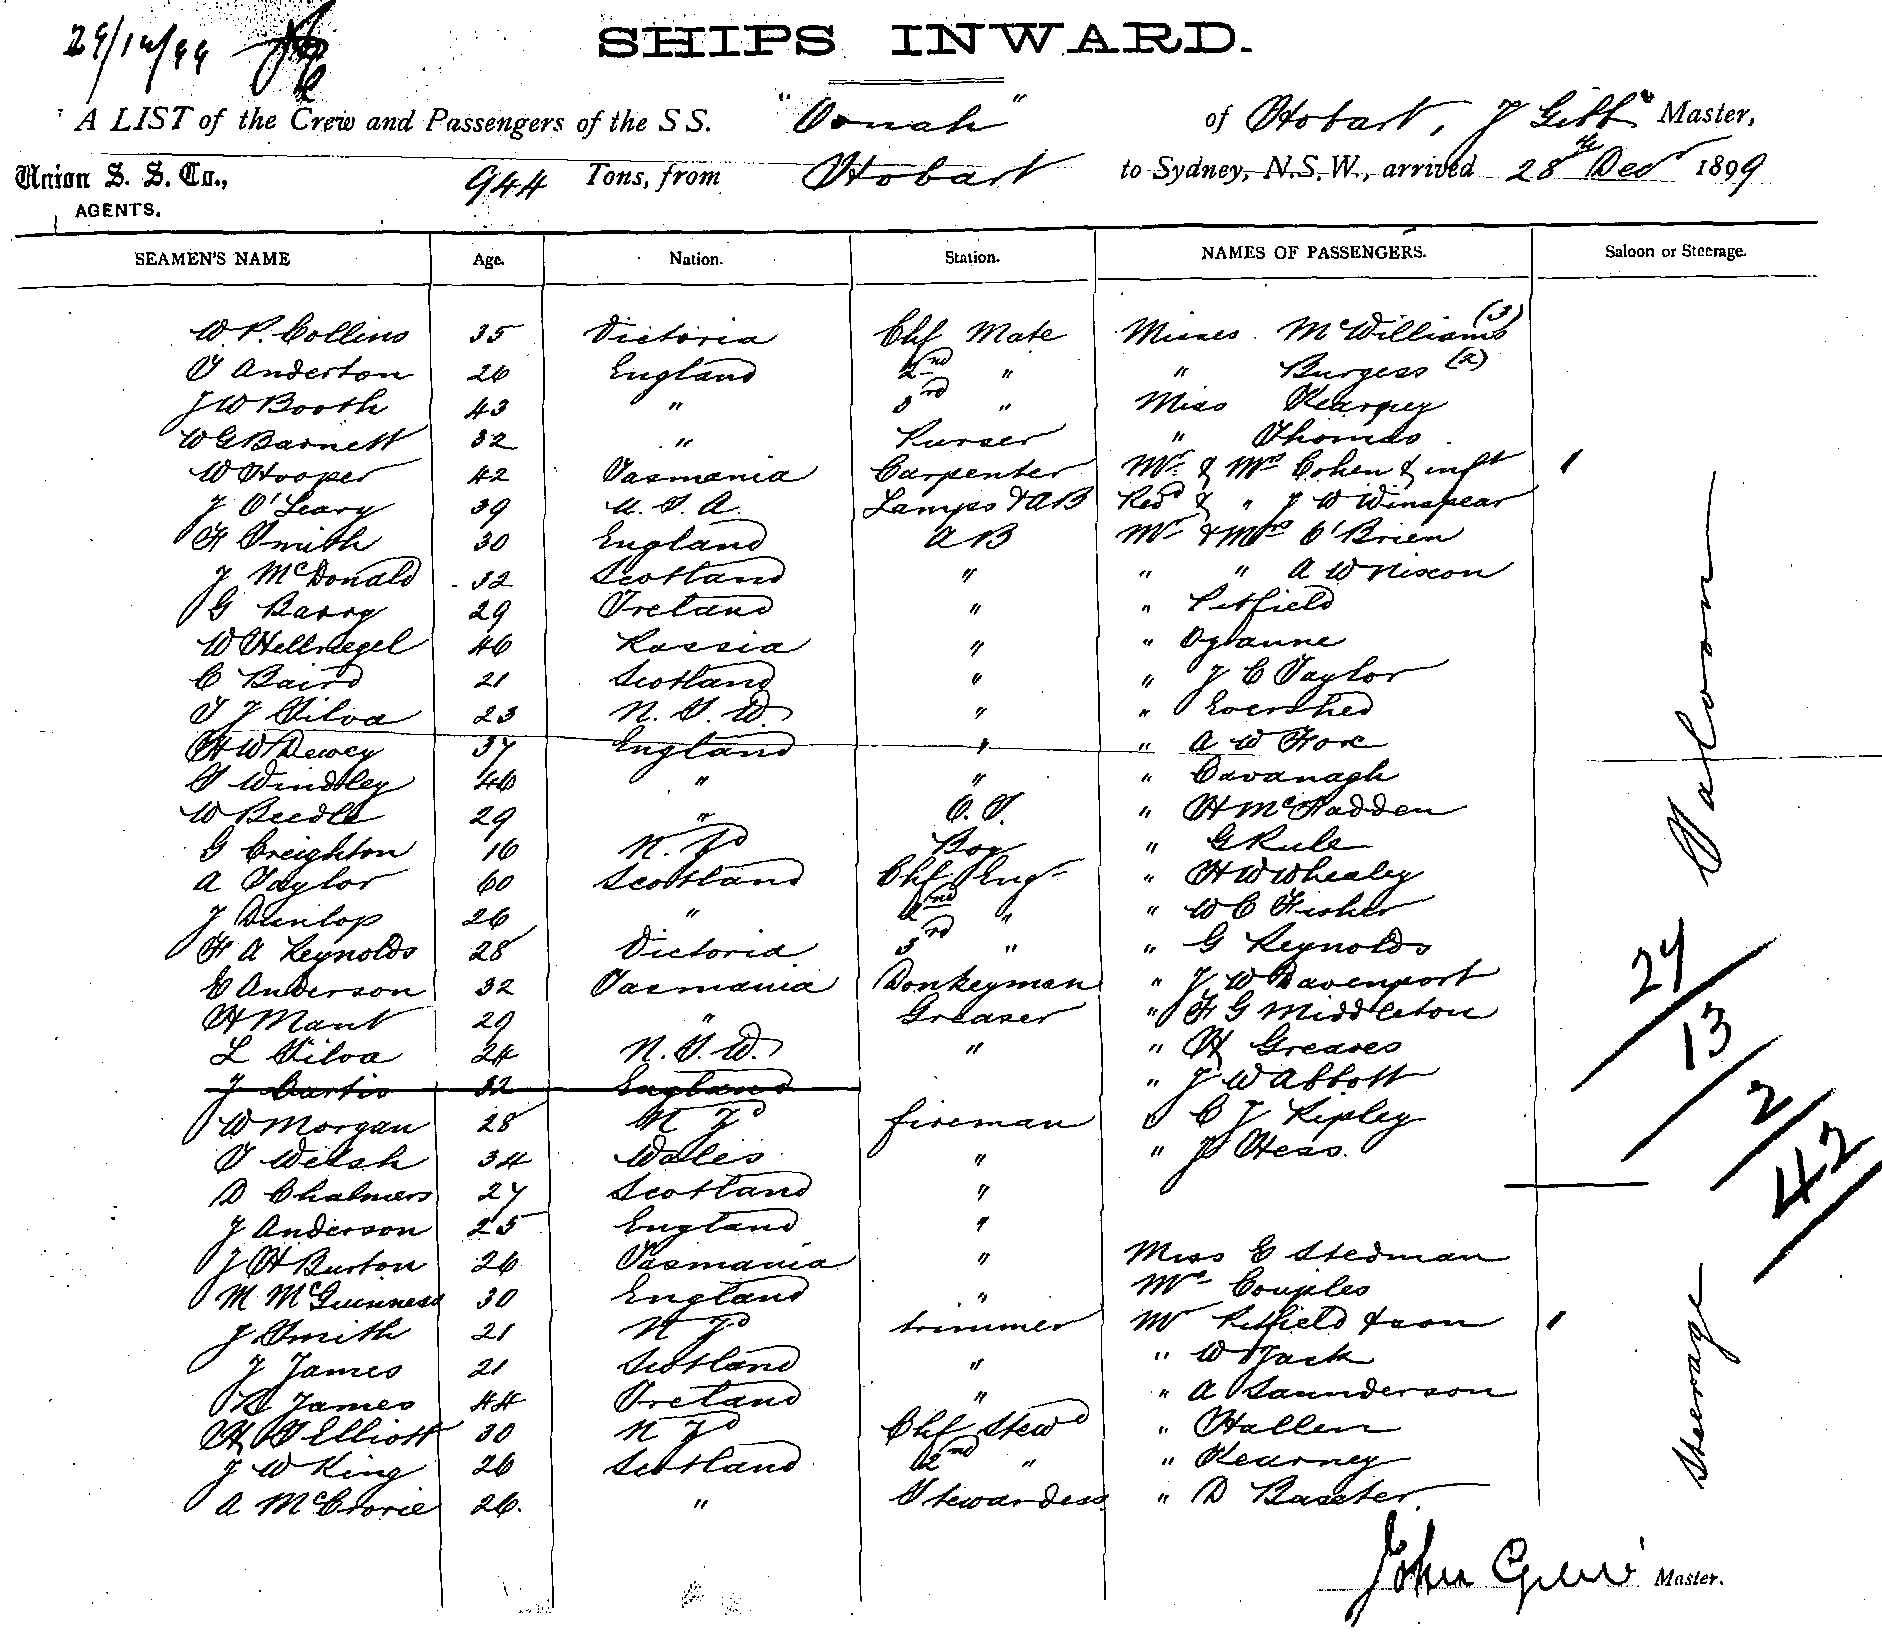 29/12/99
SHIPS INWARD.
A LIST of the Crew and Passengers of the S S. "Oonah" of Hobart, J Gibb Master,
Union S. S. Co., 944 Tons, from Hobart to Sydney, N.S.W., arrived 28th Decr 1899
AGENTS.
SEAMEN'S NAME Age. Nation. Station. NAMES OF PASSENGERS. Saloon or Steerage.
W. P. Collins 35 Victoria Chf Mate Misses McWilliams (3)
T Anderton 26 England 2nd " " Burgess (2)
J W Booth 43 " 3rd " Miss Kearney
W G Barnett 32 " Purser " Thomas
W Hooper 42 Tasmania Carpenter Mr & Mrs Cohen & inft
J O'Leary 39 U. S. A. Lamps & AB Revd & " J W Winspear
H Smith 30 England A B Mr & Mrs O'Brien
J McDonald 32 Scotland " " " A W Nixon
G Barry 29 Ireland " " Petfield
W Hellriegel 46 Russia "
C Baird 21 Scotland " " J C Taylor
T J Silva 23 N. S. W. " " Evershed
H W Dewey 37 England " " A W
S Windsley 46 " " " Cavanagh
W Beedle 29 " O. S. " H McFadden
G Creighton 16 N. Zd Boy " G Rule
A Taylor 60 Scotland Chf Engr " H W Whealey
J Dunlop 26 " 2nd " " W C Fisher
F A Reynolds 28 Victoria 3rd " " G Reynolds
C Anderson 32 Tasmania Donkeyman " J W Davenport
H Mant 29 " Greaser " F G Middleton
L Silva 24 N. S. W. " " H Greaves
J Curtis 32 England " J W Abbott
W Morgan 28 N Zd fireman " C J Ripley
T Welsh 34 Wales " " J Hess.
D Chalmers 27 Scotland "
J Anderson 25 England "
J H Burton 26 Tasmania " Miss E Stedman
M McGuinness 30 England " Mr Couples
J Smith 21 N Zd trimmer Mr Petfield & son
J James 21 Scotland " " W Jack
James 44 Ireland " " A Saunderson
H S Elliott 30 N Zd Chf Stewd " Hallen
J W King 26 Scotland 2nd " " Kearney
A McCrorie 26. " Stewardess " D Baxter.
Saloon
27
13
2
42
Steerage
Master.